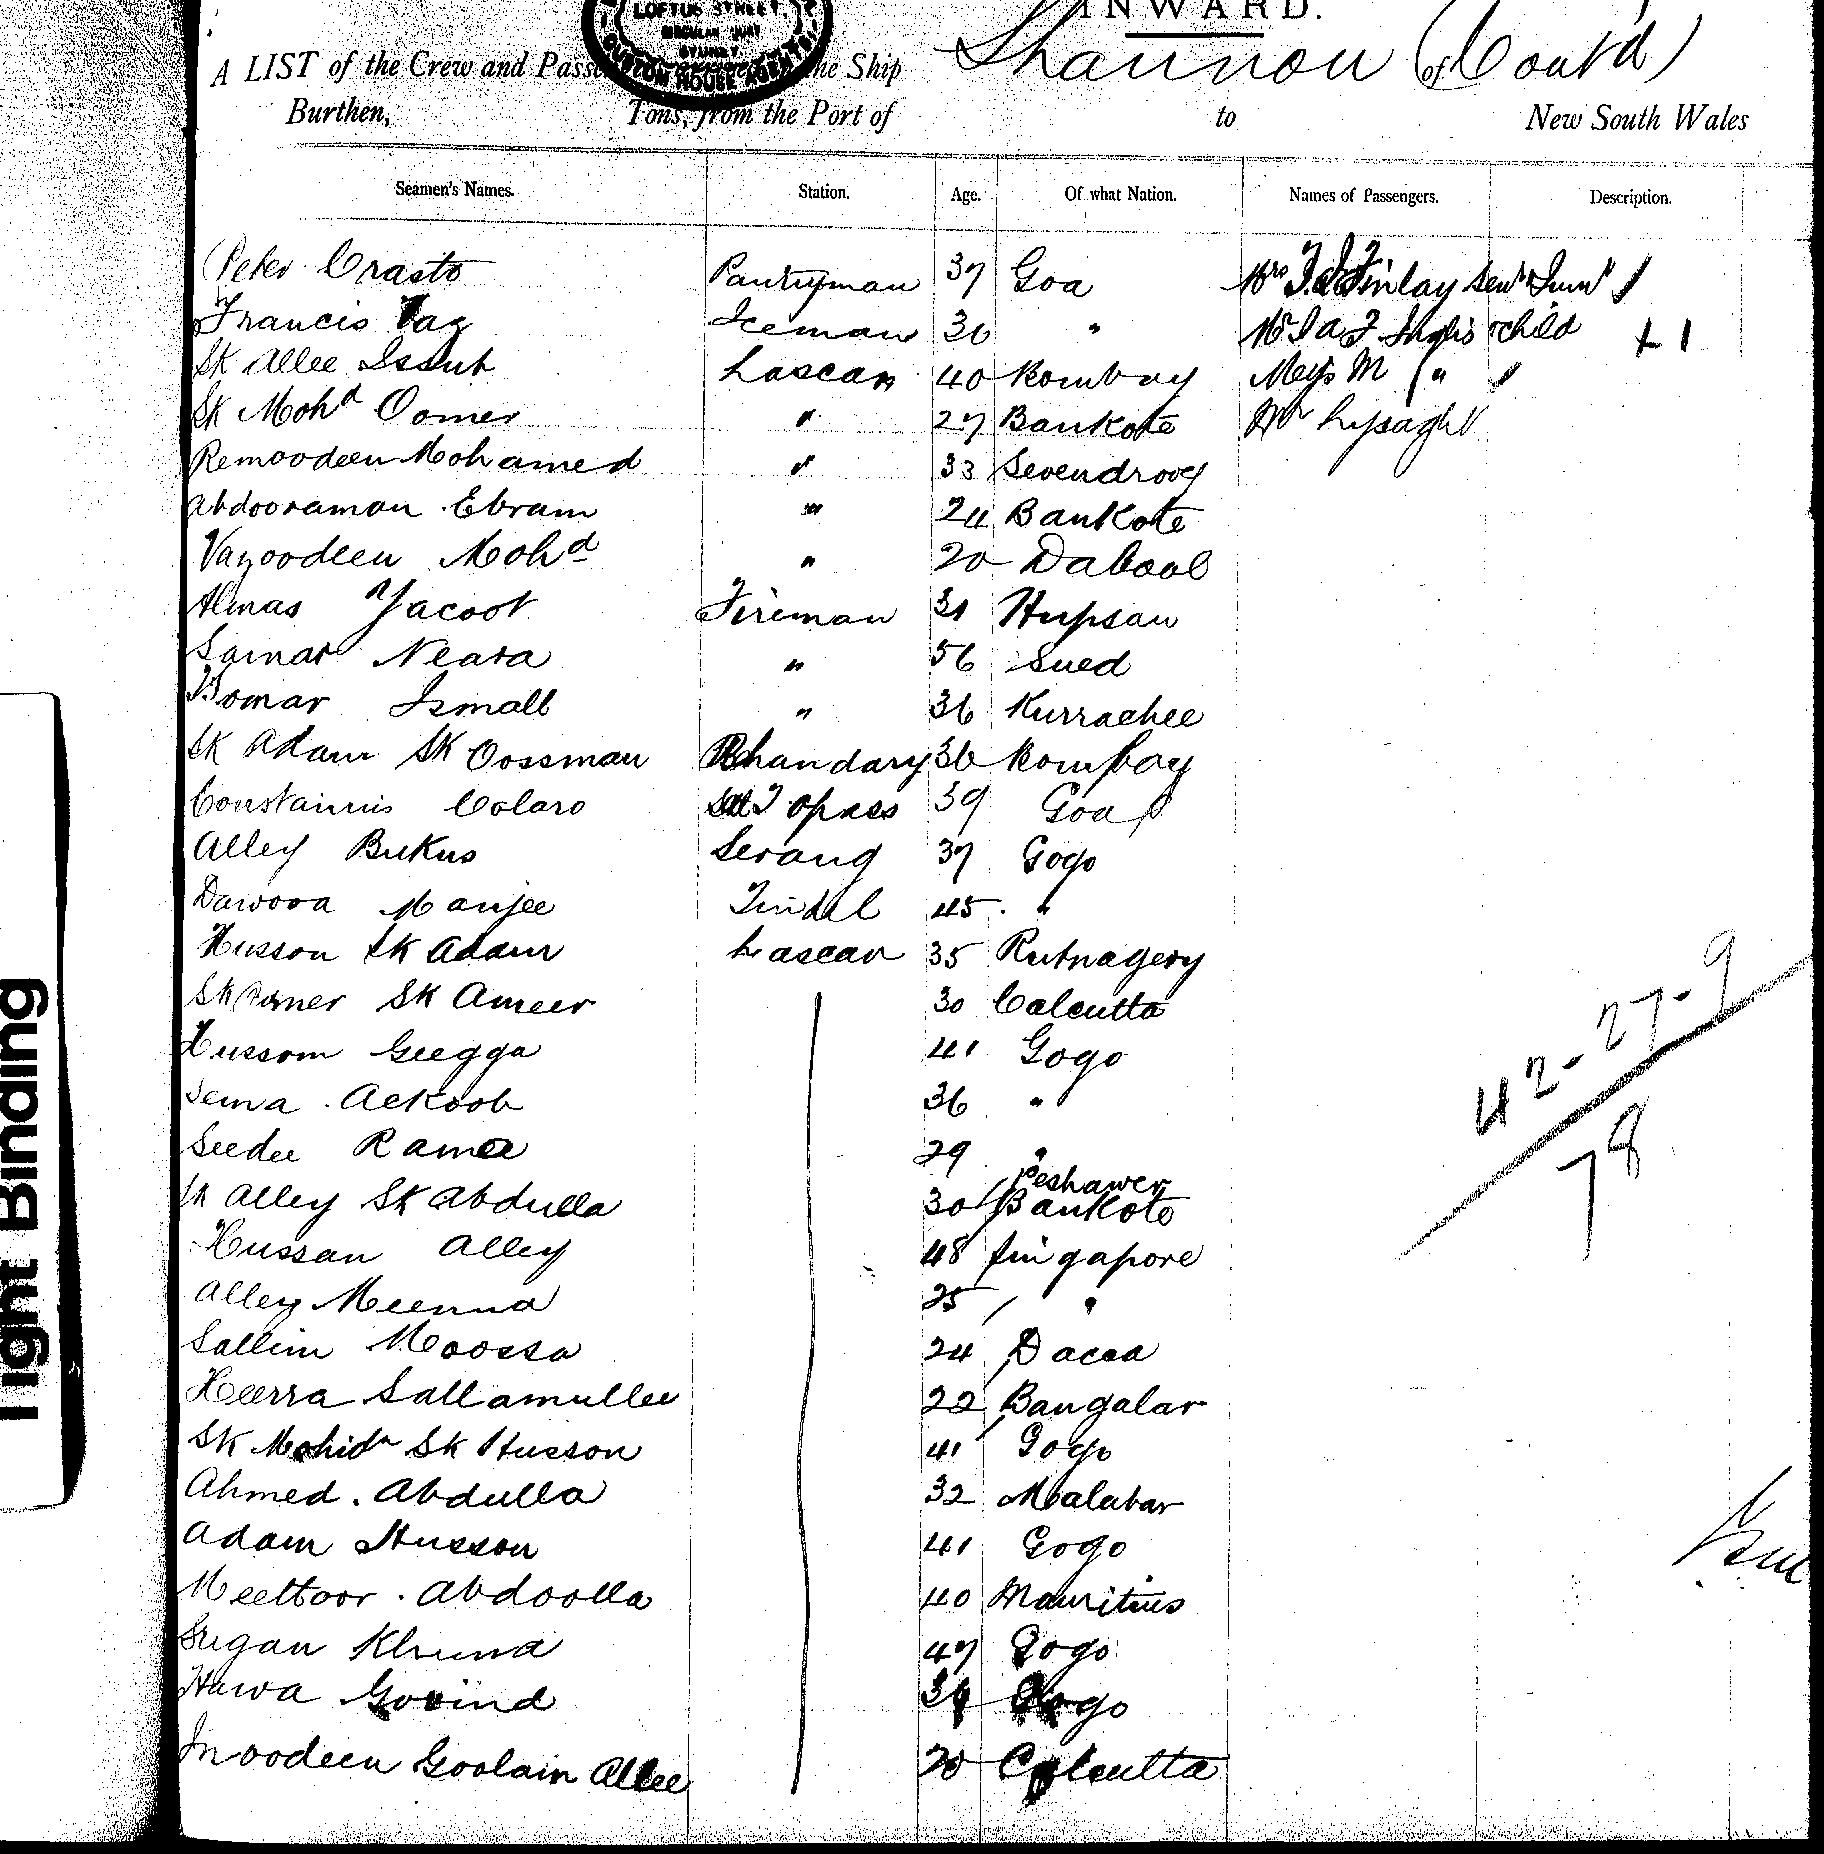 INWARD.
LOFTUS STREET
CIRCULAR QUAY
SYDNEY
CUSTOM HOUSE AGENT
A LIST of the Crew and Pass he Ship Shannon (Cont'd) of
Burthen, Tons, from the Port of to New South Wales
Seamen's Names. Station. Age. Of what Nation. Names of Passengers. Description.
Peter Crasto Pantryman 37 Goa Mrs Finlay
Francis Vaz Iceman 36 " child + 1
Sk Allee Issub Lascar 40 Bombay M "
Sk Mohd Oomer " 27 Bankote Mr Lysaght
Remoodeen Mohamed " 33 Sevendroog
Abdooraman Ebram " 24 Bankote
Vazoodeen Mohd " 20 Dabool
Almas Yacoot Fireman 31 Hupsan
Samar Neara " 56 Sued
Bomar Ismall " 36 Kurrachee
Sk Adam Sk Oossman Bhandary 36 Bombay
Colaro Topass 39 Goa
Alley Bukus Serang 37 Gogo
Dawova Manjee Tindal 45 "
Husson Sk Adam Lascar 35 Rutnagery
Sk Sk Ameer 30 Calcutta
Hussom Geegga 41 Gogo
Jema Ackoob 36 "
Seedee Rama 29 "
Peshawer
Sk Alley Sk Abdulla 30 Bankote
Hussan Alley 48 Singapore
Alley Meenna 25 "
Sallim Moossa 24 Dacca
Heerra Sallamullee 22 Bangalar
Sk Mohidn Sk Husson 41 Gogo
Ahmed Abdulla 32 Malabar
Adam Husson 41 Gogo
Meettoor Abdoolla 40 Mauritius
Sugan 47 Gogo
Hawa Govind Gogo
Inoodeen Goolam Allee 20 Calcutta
42-27-9
78
Tight Binding